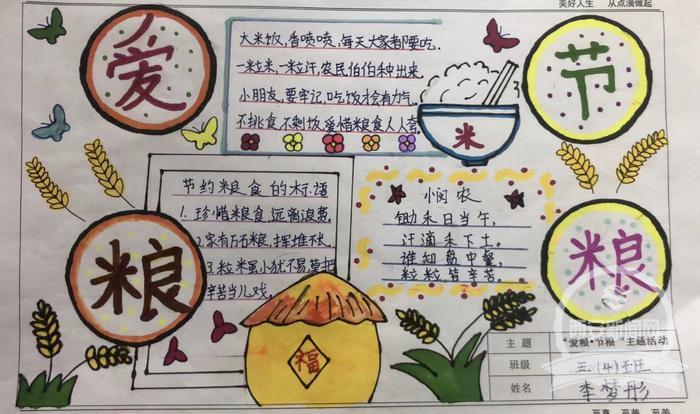 美好人生 从点滴做起
爱
节
粮
粮
大米饭,香喷喷,每天大家都要吃.
一粒米,一粒汗,农民伯伯种出来.
小朋友,要牢记,吃饭才会有力气.
不挑食,不剩饭,爱惜粮食人人夸.
米
节约粮食的标语
1. 珍惜粮食,远离浪费.
2.家有万石粮,挥堆不长.
3.粒米虽小犹不易,莫把
辛苦当儿戏.
悯农
锄禾日当午,
汗滴禾下土.
谁知盘中餐,
粒粒皆辛苦.
福
主题 "爱粮·节粮"主题活动
班级 三.(4)班
姓名 李梦彤
至真 至善 至美